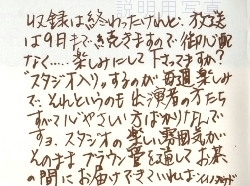 収録は終わったけれど、放送
は9月まで続きますので御心配
なく……楽しみにして下さってますか?
"スタジオ入り"するのが毎週楽しみ
で、それというのも出演者の方たち
すべてしやさしい方ばかりなんで
すョ、スタジオの楽しい雰囲気が
そのままブラウン管を通してお茶
の間にお届けできていれば